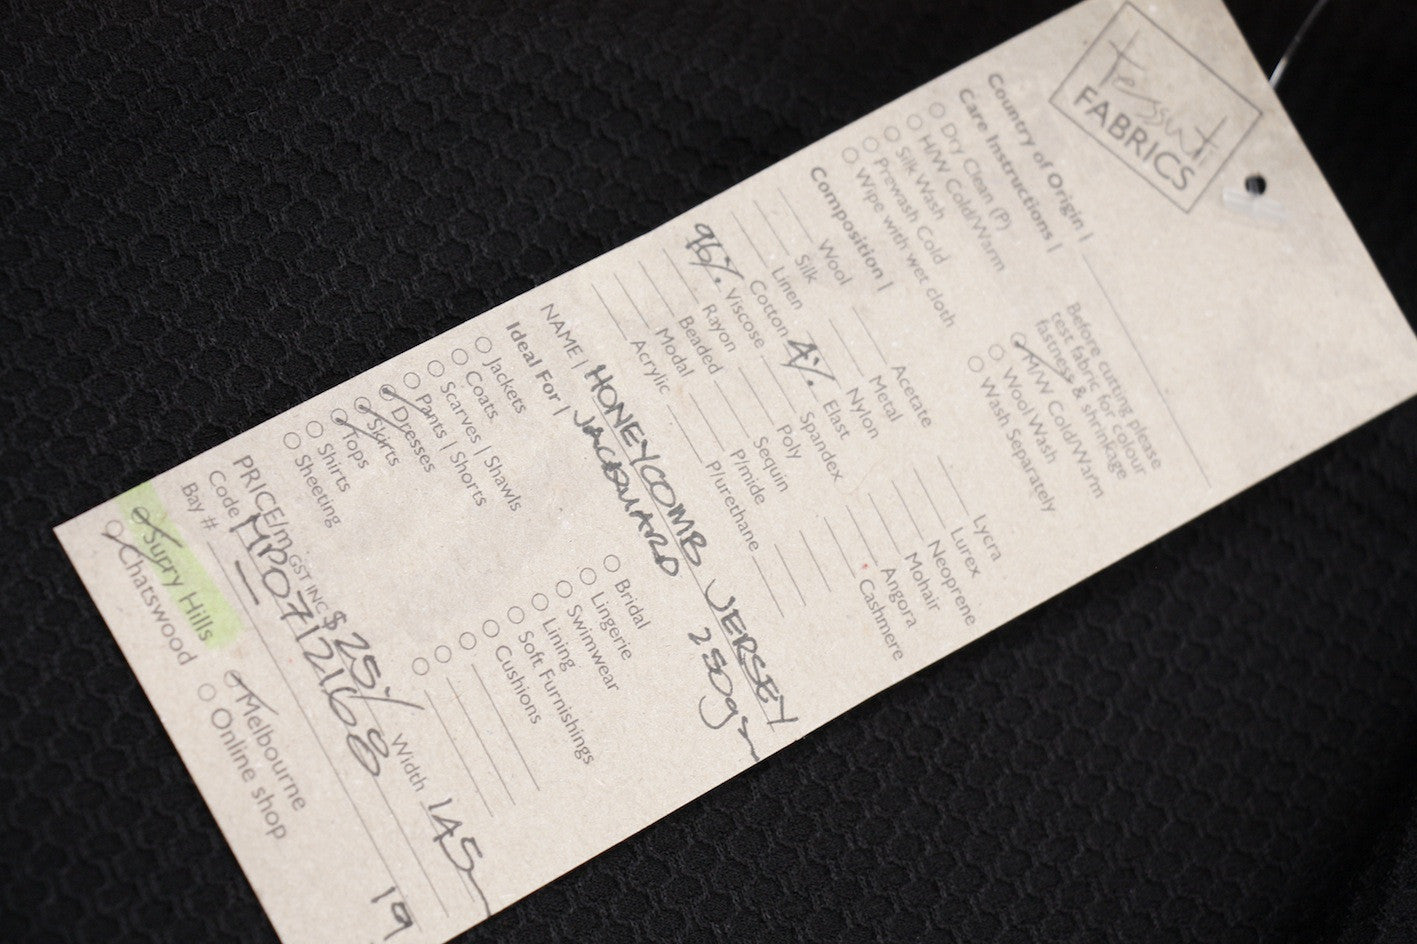 Tessuti
FABRICS
Country of Origin |
Care Instructions |
Dry Clean (P)
H/W Cold/Warm
Silk Wash
Prewash Cold
Wipe with wet cloth
Before cutting please
test fabric for colour
fastness & shrinkage
H/W Cold/Warm
Wool Wash
Wash Separately
Composition |
Wool
Silk
Linen
Cotton
96% Viscose
Rayon
Beaded
Modal
Acrylic
Acetate
Metal
Nylon
4% Elast
Spandex
Poly
Sequin
P/mide
P/urethane
Lycra
Lurex
Neoprene
Mohair
Angora
Cashmere
NAME | HONEYCOMB JERSEY
JACQUARD 280gm
Ideal For |
Jackets
Coats
Scarves | Shawls
Pants | Shorts
Dresses
Skirts
Tops
Shirts
Sheeting
Bridal
Lingerie
Swimwear
Lining
Soft Furnishings
Cushions
PRICE/m GST INC $25/ Width 145
Code
Bay # 19
Surry Hills
Chatswood
Melbourne
Online shop